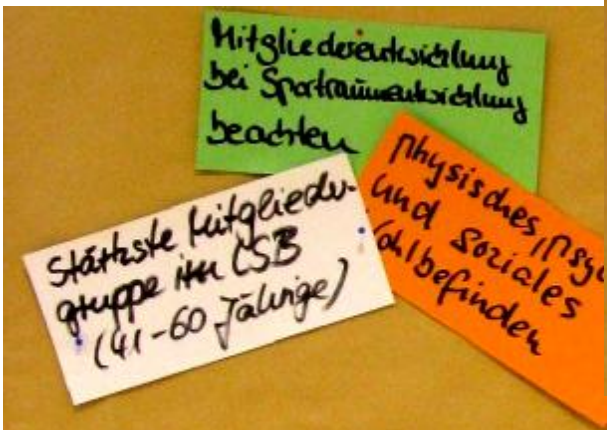 Mitgliederentwicklung
bei Sportraumentwicklung
beachten
Physisches, Psy
und soziales
Wohlbefinden
Stärkste Mitglieder-
gruppe im LSB
(41-60 Jährige)